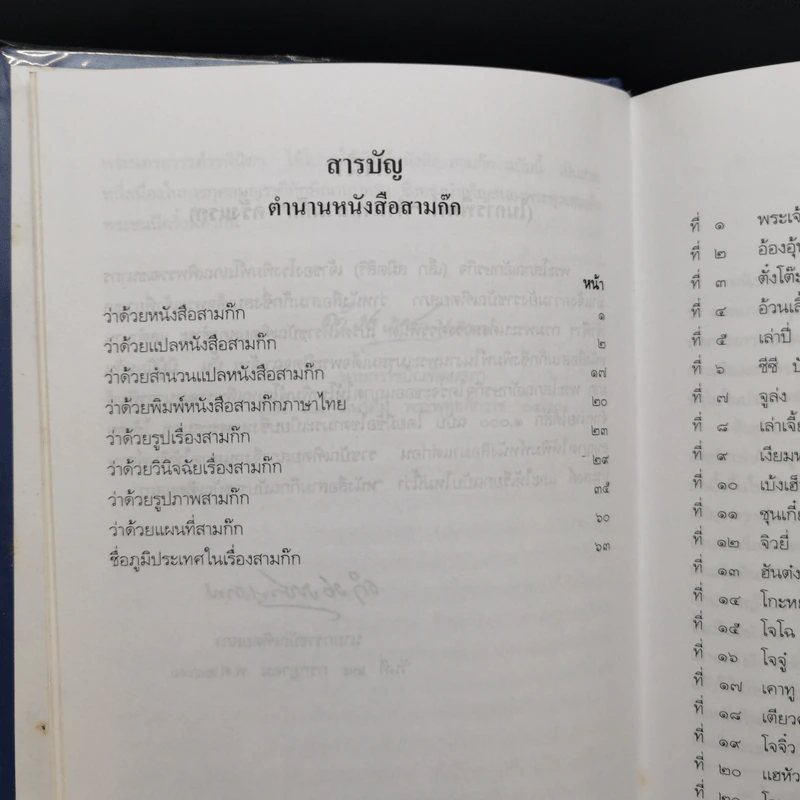 สารบัญ
ตำนานหนังสือสามก๊ก
หน้า
ว่าด้วยหนังสือสามก๊ก ๑
ว่าด้วยแปลหนังสือสามก๊ก ๒
ว่าด้วยสำนวนแปลหนังสือสามก๊ก ๑๗
ว่าด้วยพิมพ์หนังสือสามก๊กภาษาไทย ๒๐
ว่าด้วยรูปเรื่องสามก๊ก ๒๓
ว่าด้วยวินิจฉัยเรื่องสามก๊ก ๒๙
ว่าด้วยรูปภาพสามก๊ก ๓๕
ว่าด้วยแผนที่สามก๊ก ๖๐
ชื่อภูมิประเทศในเรื่องสามก๊ก ๖๓
ที่ ๑ พระเจ้
ที่ ๒ อ้องอุ้น
ที่ ๓ ตั๋งโต๊ะ
ที่ ๔ อ้วนเสี
ที่ ๕ เล่าปี่
ที่ ๖ ชีซี
ที่ ๗ จูล่ง
ที่ ๘ เล่าเจี้ย
ที่ ๙ เงียมห
ที่ ๑๐ เบ้งเฮ็
ที่ ๑๑ ซุนเกี๋ย
ที่ ๑๒ จิวยี่
ที่ ๑๓ ฮันต๋ง
ที่ ๑๔ โกะหย
ที่ ๑๕ โจโฉ
ที่ ๑๖ โจจู๋
ที่ ๑๗ เคาทู
ที่ ๑๘ เตียว
ที่ ๑๙ โจจิ๋ว
ที่ ๒๐ แฮหัว
ที่